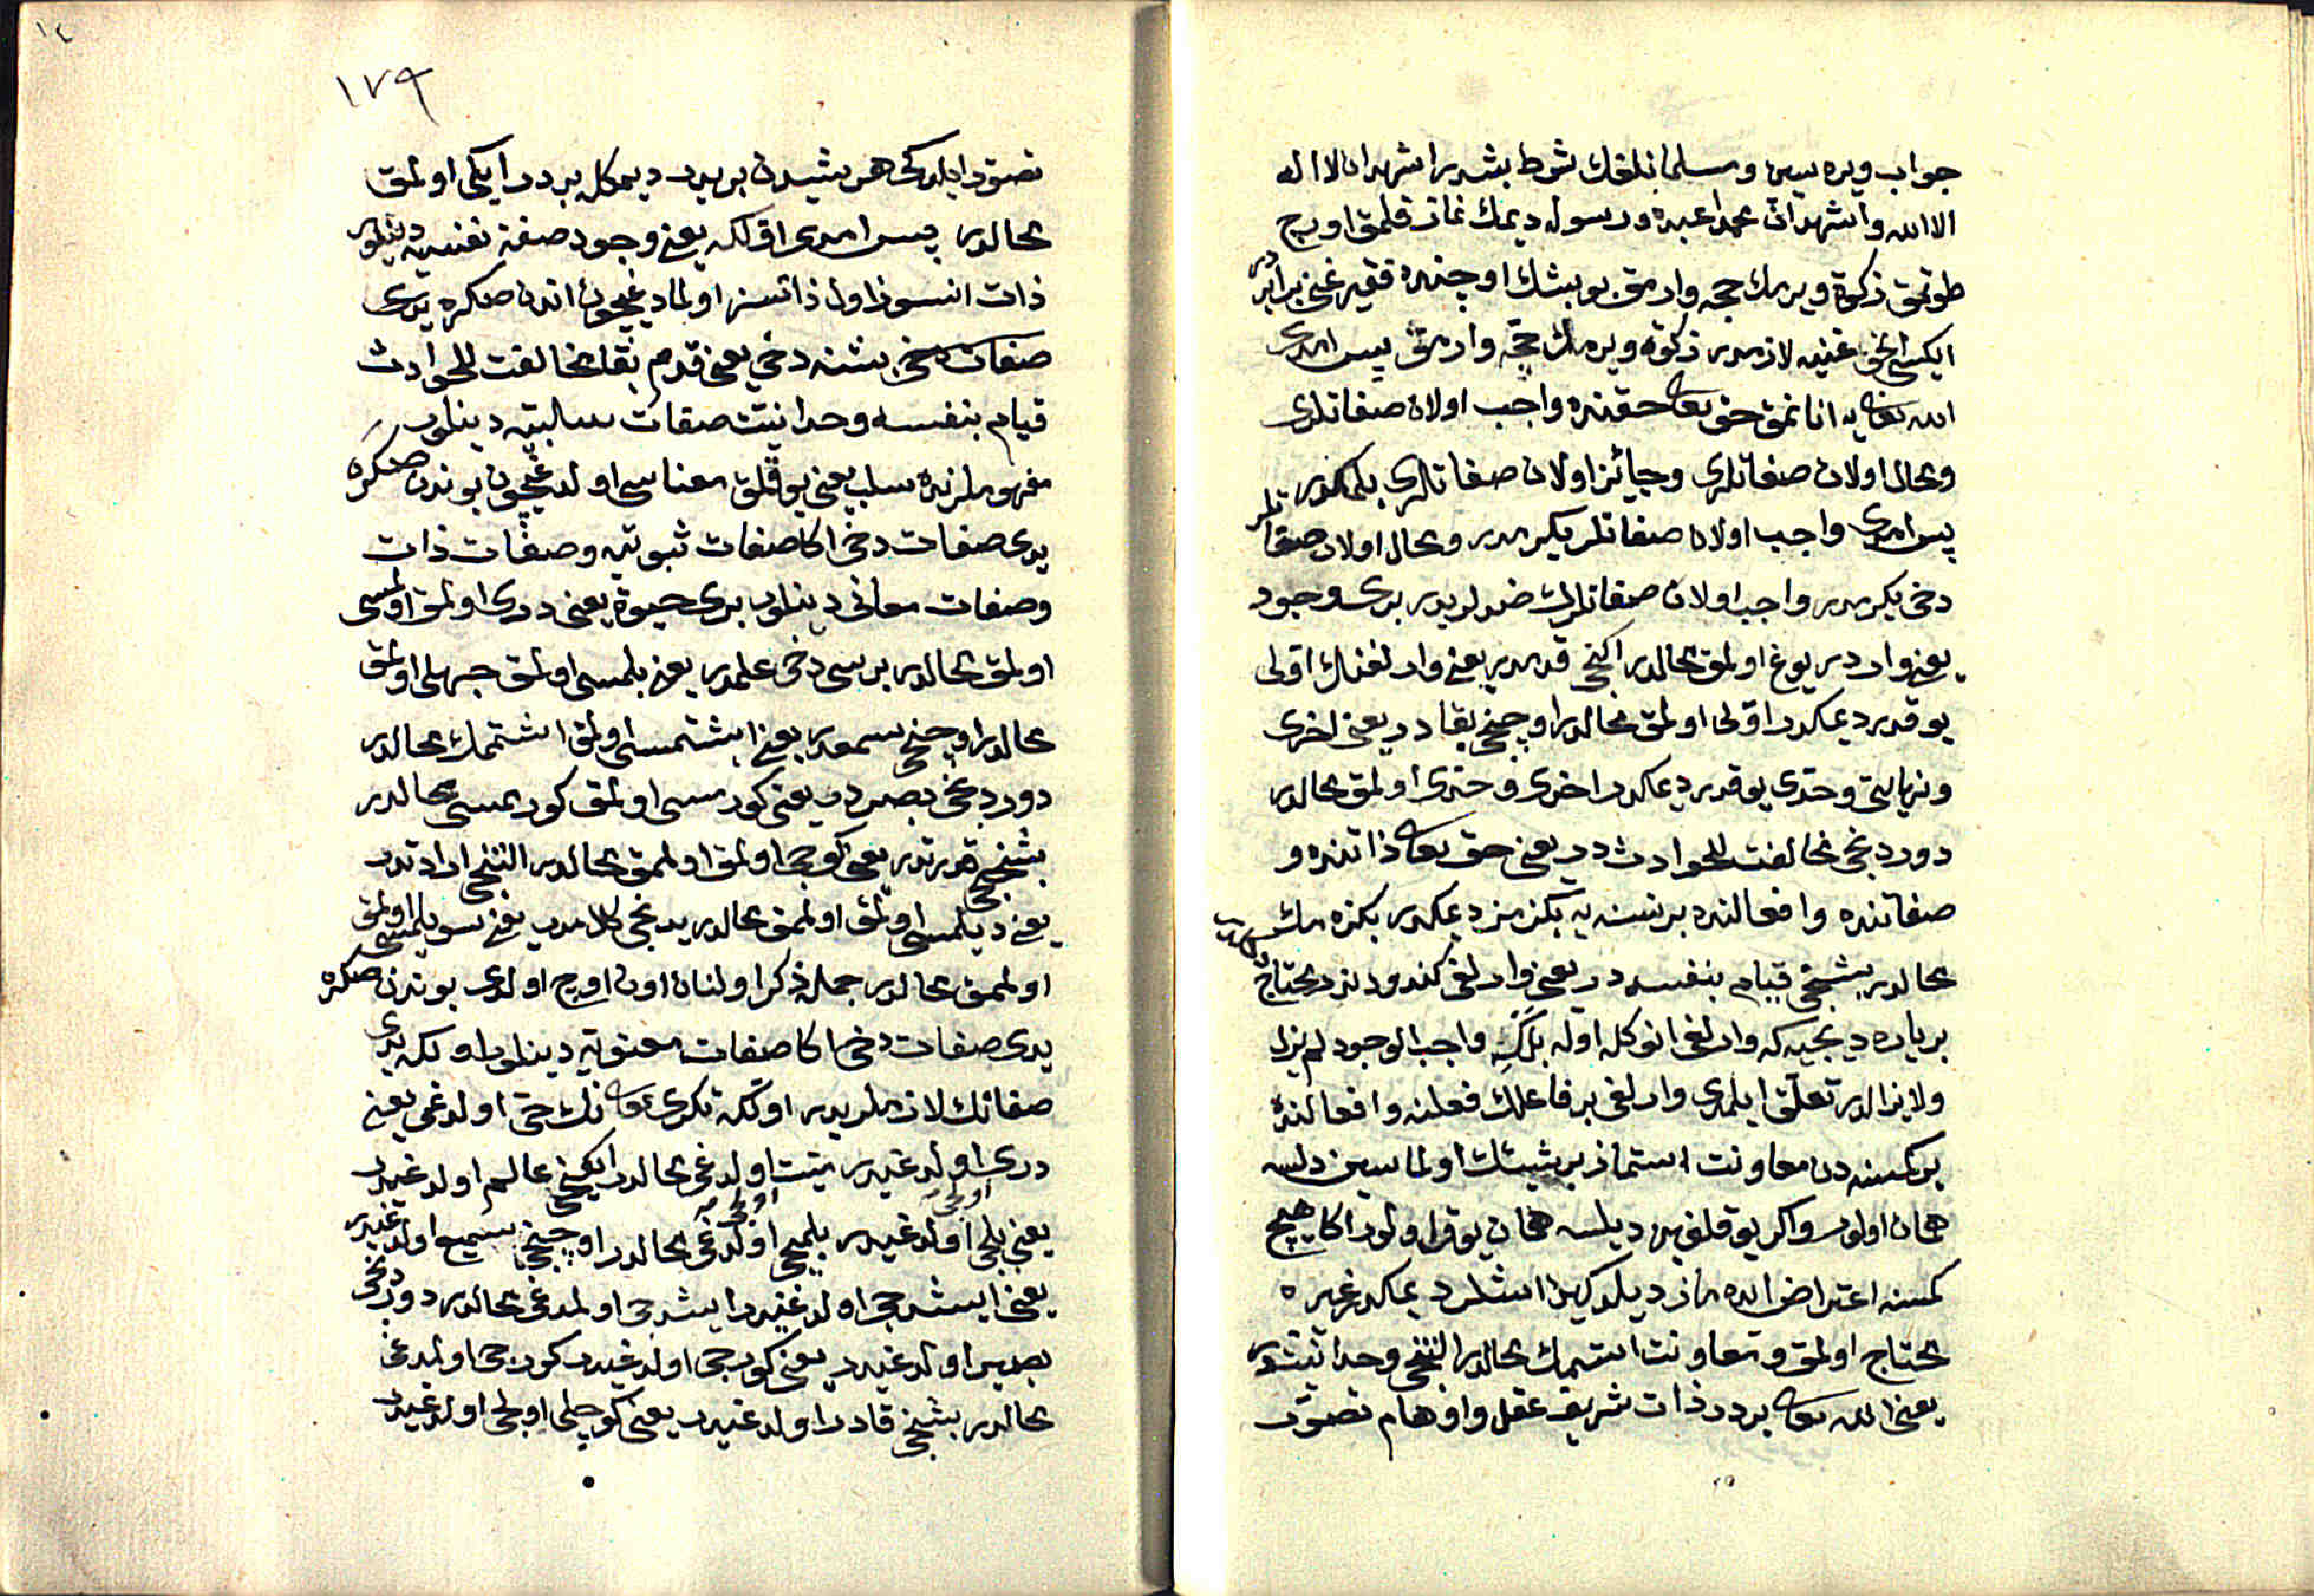 جواب ويره سين ومسلمانلقك شرط بشدر اشهد ان لا اله
الا الله واشهد ان محمدا عبده ورسوله ديمك نماز قلمق اورج
طوتمق زكوة ويرمك حجه وارمق بو بشك اوچنده فقير غني برابردر
ايكسي دخي غنيه لازمدر زكوة ويرمك حجه وارمق پس امدى
الله تعالى يه انانمق حق تعالى حقنده واجب اولان صفاتلرى
ومحال اولان صفاتلرى وجائز اولان صفاتلرى بلمكدر
پس امدى واجب اولان صفاتلر يكرمدر ومحال اولان صفاتلر
دخى يكرمدر واجب اولان صفاتلرك ضدلريدر برى وجود
يعنى واردر يوغ اولمق محالدر اكنجى قدمدر يعنى وارلغنك اولى
يوقدر ديمكدر اولى اولمق محالدر اوچنجى بقادر يعنى اخرى
ونهايتى وحدى يوقدر ديمكدر اخرى وحدى اولمق محالدر
دوردنجى مخالفت للحوادثدر يعنى حق تعالى ذاتنده و
صفاتنده وافعالنده بر نسنه يه بكزمز ديمكدر بكزه مك
محالدر بشنجى قيام بنفسه در يعنى وارلغى كندودندر محتاج
بر ياره ديجيه كه وارلغى انوكله اوله بلكه واجب الوجود لم يزل
ولا يزالدر تعلق ايلمدى وارلغى بر فاعلك فعلنه وافعالنده
بر كمسنه دن معاونت استماز بر شيئك اولماسين دلسه
همان اولور واكر يوقلغين ديلسه همان يوق اولور اكا هيچ
كمسنه اعتراض ايده ماز ديلدوكين اشلر ديمكدر غيره
محتاج اولمق ومعاونت استمك محالدر التنجى وحدانيتدر
يعنى الله تعالى بردر ذات شريف عقل واوهام تصور
١٤
١٧٩
تصور ايلدكى هر شيدن بريدر ديمكله بردر ايكى اولمق
محالدر پس امدى اولكه يعنى وجود صفة نفسيه دينلور
ذات انسوز اول ذاتسز اولمادوغيچون اندن صكره يدى
صفات دخى بشنه دخى يعنى قدم بقا مخالفت للحوادث
قيام بنفسه وحدانيت صفات سالبيه دينلور
مفهوملرنده سلب يعنى يوقلق معناسى اولدغيچون بوندن صكره
يدى صفات دخى اكا صفات ثبوتيه وصفات ذات
وصفات معانى دينلور برى حيوة يعنى درى اولمق اولمسى
اولمق محالدر برسى دخى علمدر يعنى بلمسى اولمق جهلى اولمق
محالدر اوچنجى سمعدر يعنى اشتمسى اولمق اشتممك محالدر
دوردنجى بصردر يعنى كورمسى اولمق كورممسى محالدر
بشنجى قدرتدر يعنى كوجى اولمق اولممق محالدر التنجى ارادتدر
يعنى ديلمسى اولمق اولممق محالدر يدنجى كلامدر يعنى سويلمسى اولمق
اولممق محالدر جمله ذكر اولنان اون اوچ اولدى بوندن صكره
يدى صفات دخى اكا صفات معنويه دينلور اولكه يدى
صفاتك لازملريدر اولكه تكرى تعالى نك حى اولدغى يعنى
درى اولدغيدر ميت اولدغى محالدر ايكنجى عالم اولدغيدر
يعنى بلجى اولدغيدر بلمجى اولدغى محالدر اوچنجى سميع اولدغيدر
يعنى ايشدجى اولدغيدر ايشدجى اولمدغى محالدر دوردنجى
بصير اولدغيدر يعنى كورجى اولدغيدر كورمجى اولدغى
محالدر بشنجى قادر اولدغيدر يعنى كوجلى اولجى اولدغيدر